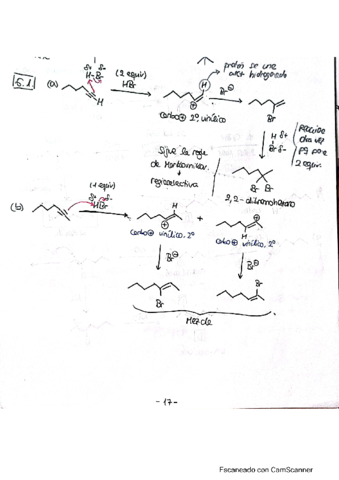 5.1 (a)
δ+ δ-
H-Br
(2 equiv)
HBr
H
protón se une
H
carbo⊕ 2º vinílico
Br⊖
Br
H δ+
Br δ-
Reacciona
otra vez
2 equiv.
Sigue la regla
de Markovnikov
+
regioselectiva
Br Br
2,2-dibromohexano
(b)
(1 equiv)
δ+ δ-
HBr
H
⊕
+
⊕
H
carbo⊕ vinílico, 2º
carbo⊕ vinílico, 2º
Br⊖
Br⊖
Br
Br
Mezcla
- 17 -
Escaneado con CamScanner